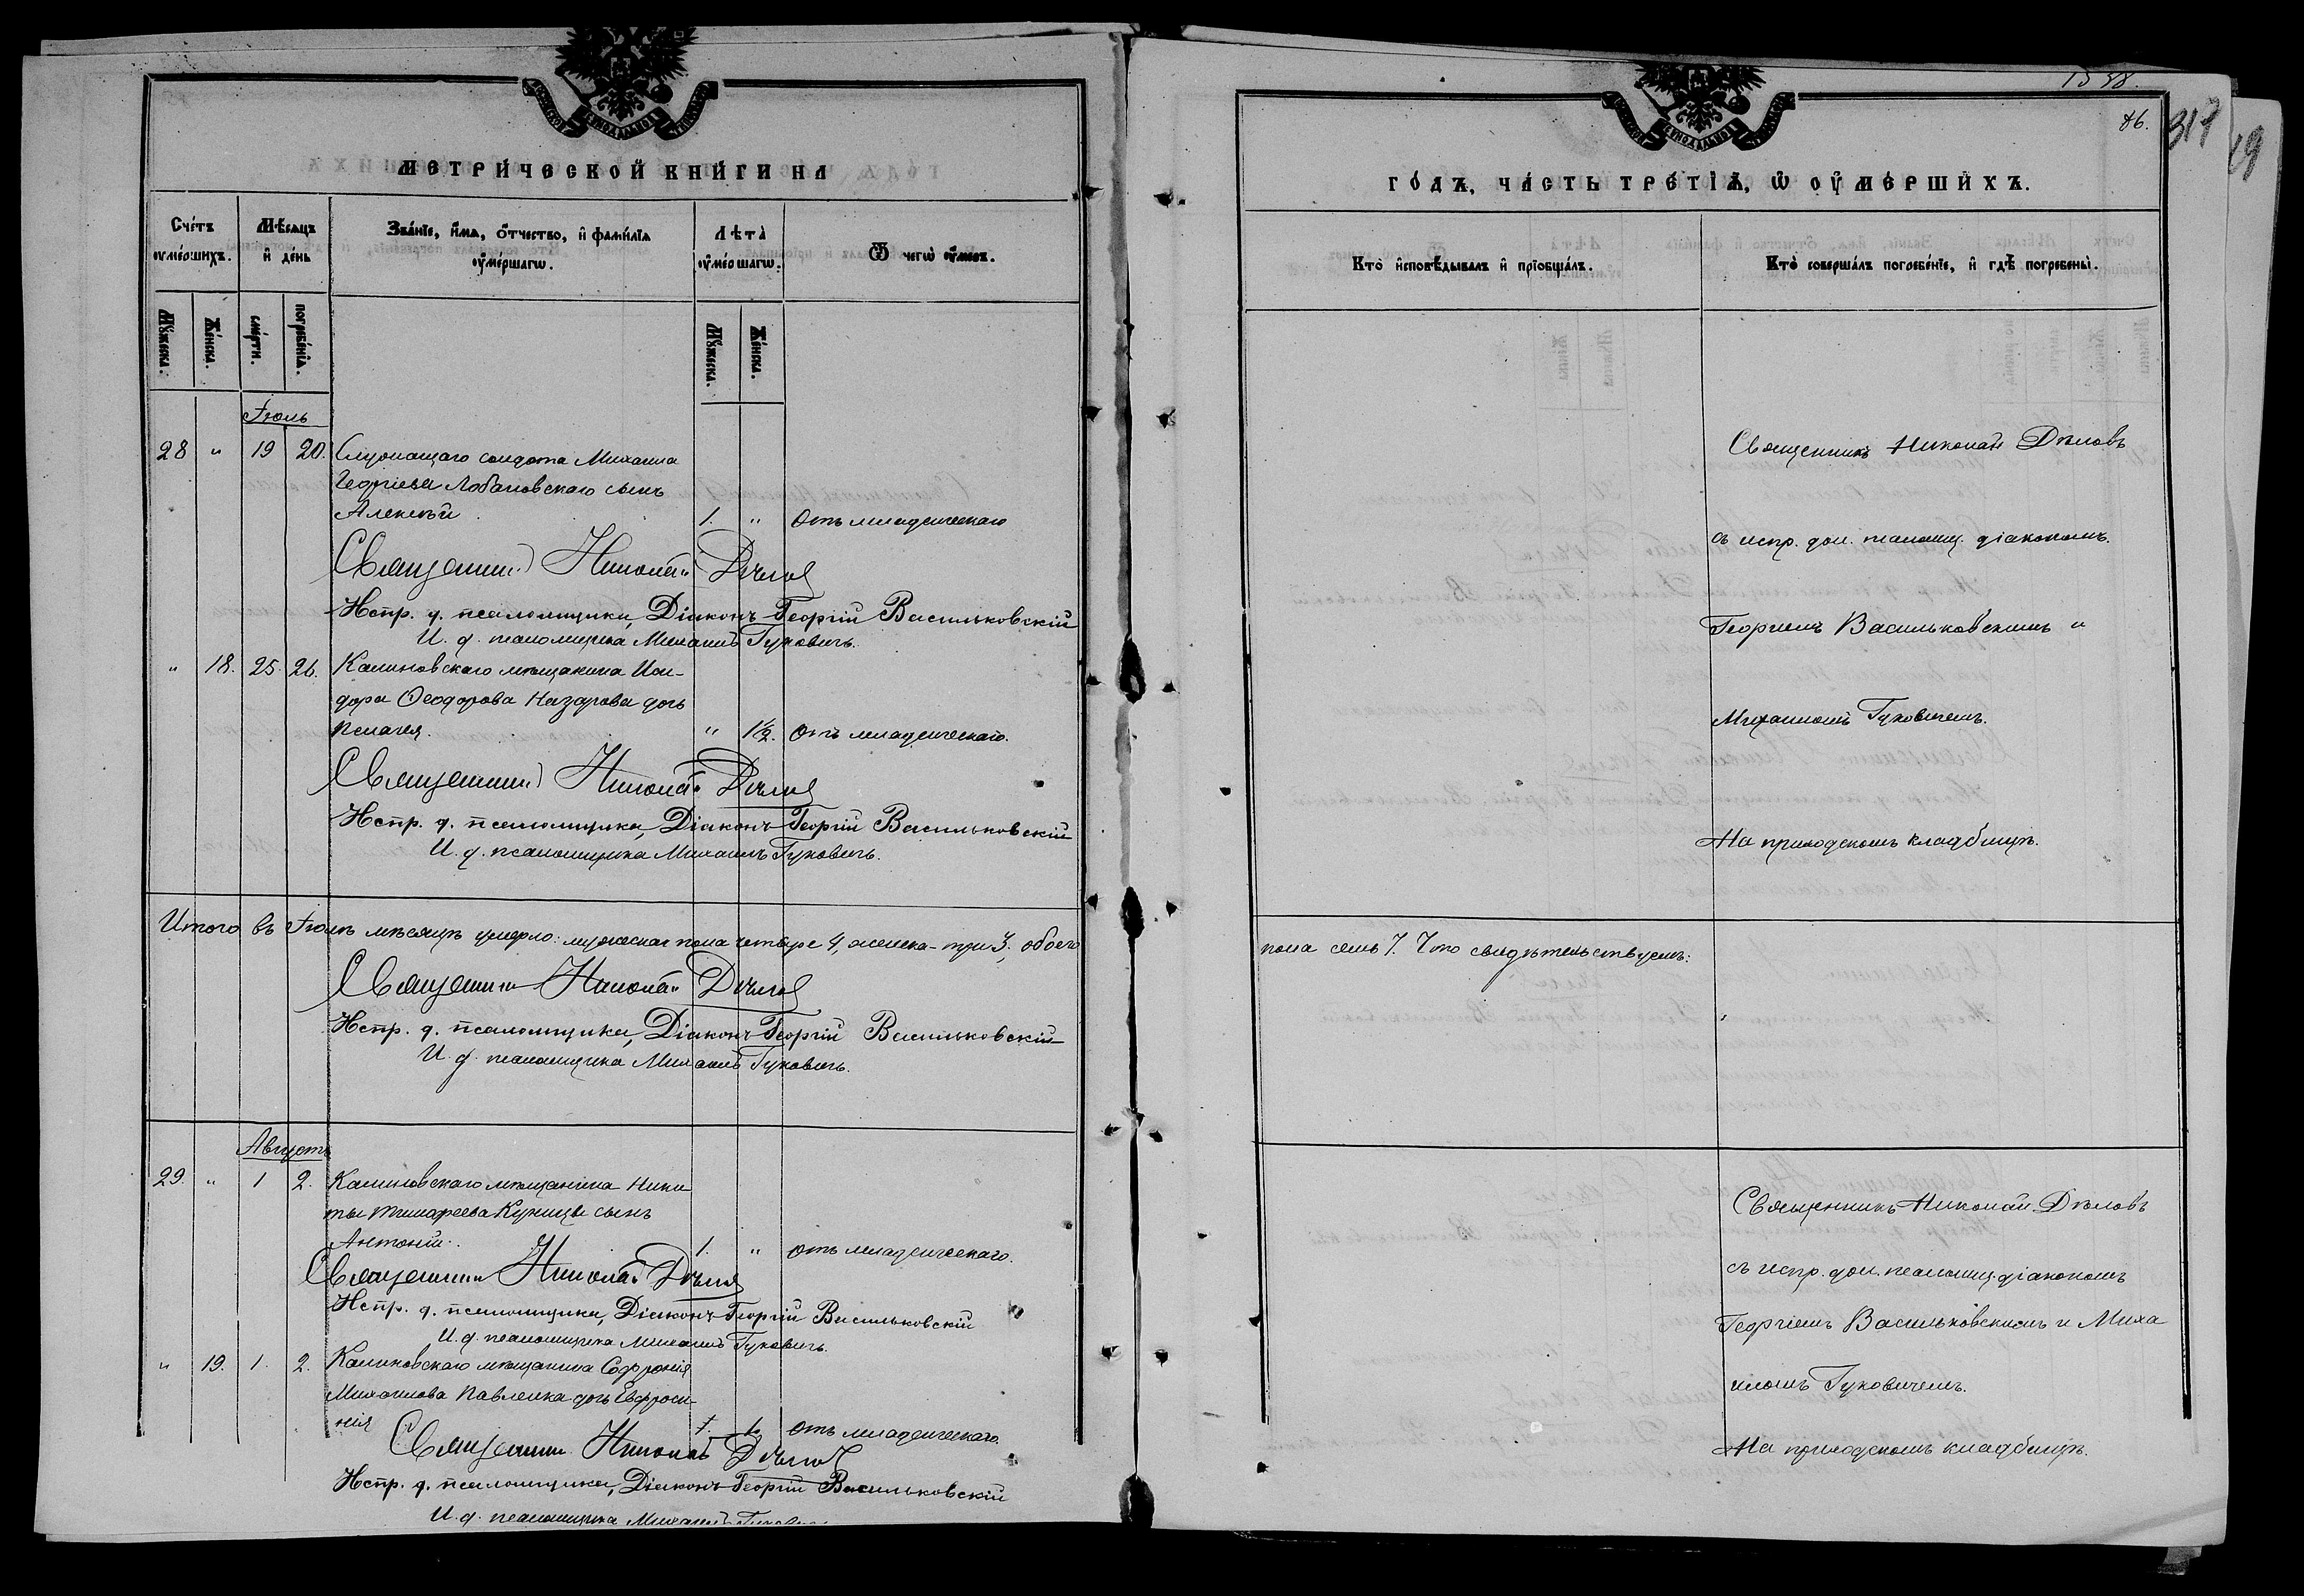 МЕТРИ́ЧЕСКОЙ КНИ́ГИ НА
Сче́тъ оумершихъ.
Мѣсяцъ и день
Зва́нїе, и́мя, о́тчество, и фами́лїя оуме́ршагѡ.
Лѣта̀ оуме́ршагѡ.
Ѿ чегѡ̀ оумеръ.
Мꙋ́жеска.
Же́нска.
сме́рти.
погребе́нїѧ.
Мꙋ́жеска.
Же́нска.
Іюль
28 " 19 20. Служащаго солдата Михаила
Георгіева Лобановскаго сынъ
Алексѣй. 1. " Отъ младенческаго
Священникъ Николай Дѣловъ
Испр. д. псаломщика, Діаконъ Георгій Васильковскій
И. д. псаломщика Михаилъ Гуковичъ.
" 18. 25. 26. Калиновскаго мѣщанина Иси-
дора Ѳеодорова Назарова дочь
Пелагея. " 1½. Отъ младенческаго.
Священникъ Николай Дѣловъ
Испр. д. псаломщика, Діаконъ Георгій Васильковскій
И. д. псаломщика Михаилъ Гуковичъ.
Итого въ Іюлѣ мѣсяцѣ умерло: мужеска пола четыре 4, женска - три 3, обоего
Священникъ Николай Дѣловъ
Испр. д. псаломщика, Діаконъ Георгій Васильковскій
И. д. псаломщика Михаилъ Гуковичъ.
Августъ
29. " 1 2. Калиновскаго мѣщанина Ники
ты Тимофеева Куницы сынъ
Антоній. 1. " Отъ младенческаго.
Священникъ Николай Дѣловъ
Испр. д. псаломщика, Діаконъ Георгій Васильковскій
И. д. псаломщика Михаилъ Гуковичъ.
" 19. 1. 2. Калиновскаго мѣщанина Софронія
Михаилова Павленка дочь Евфроси-
нія Отъ младенческаго.
Священникъ Николай Дѣловъ
Испр. д. псаломщика, Діаконъ Георгій Васильковскій
И. д. псаломщика Михаилъ
86.
317
19
ГО́ДЪ, ЧА́СТЬ ТРЕ́ТЇѦ, Ѡ ОУМЕ́РШИХЪ.
Кто̀ исповѣ́дывалъ и прїобща́лъ.
Кто̀ соверша́лъ погребе́нїе, и гдѣ̀ погребены̀.
Священникъ Николай Дѣловъ
съ испр. дол. псаломщ. діакономъ
Георгіемъ Васильковскимъ и
Михаиломъ Гуковичемъ.
На приходскомъ кладбищѣ.
пола семь 7. Что свидѣтельствуемъ:
Священникъ Николай Дѣловъ
съ испр. дол. псаломщ. діакономъ
Георгіемъ Васильковскимъ и Миха
иломъ Гуковичемъ.
На приходскомъ кладбищѣ.